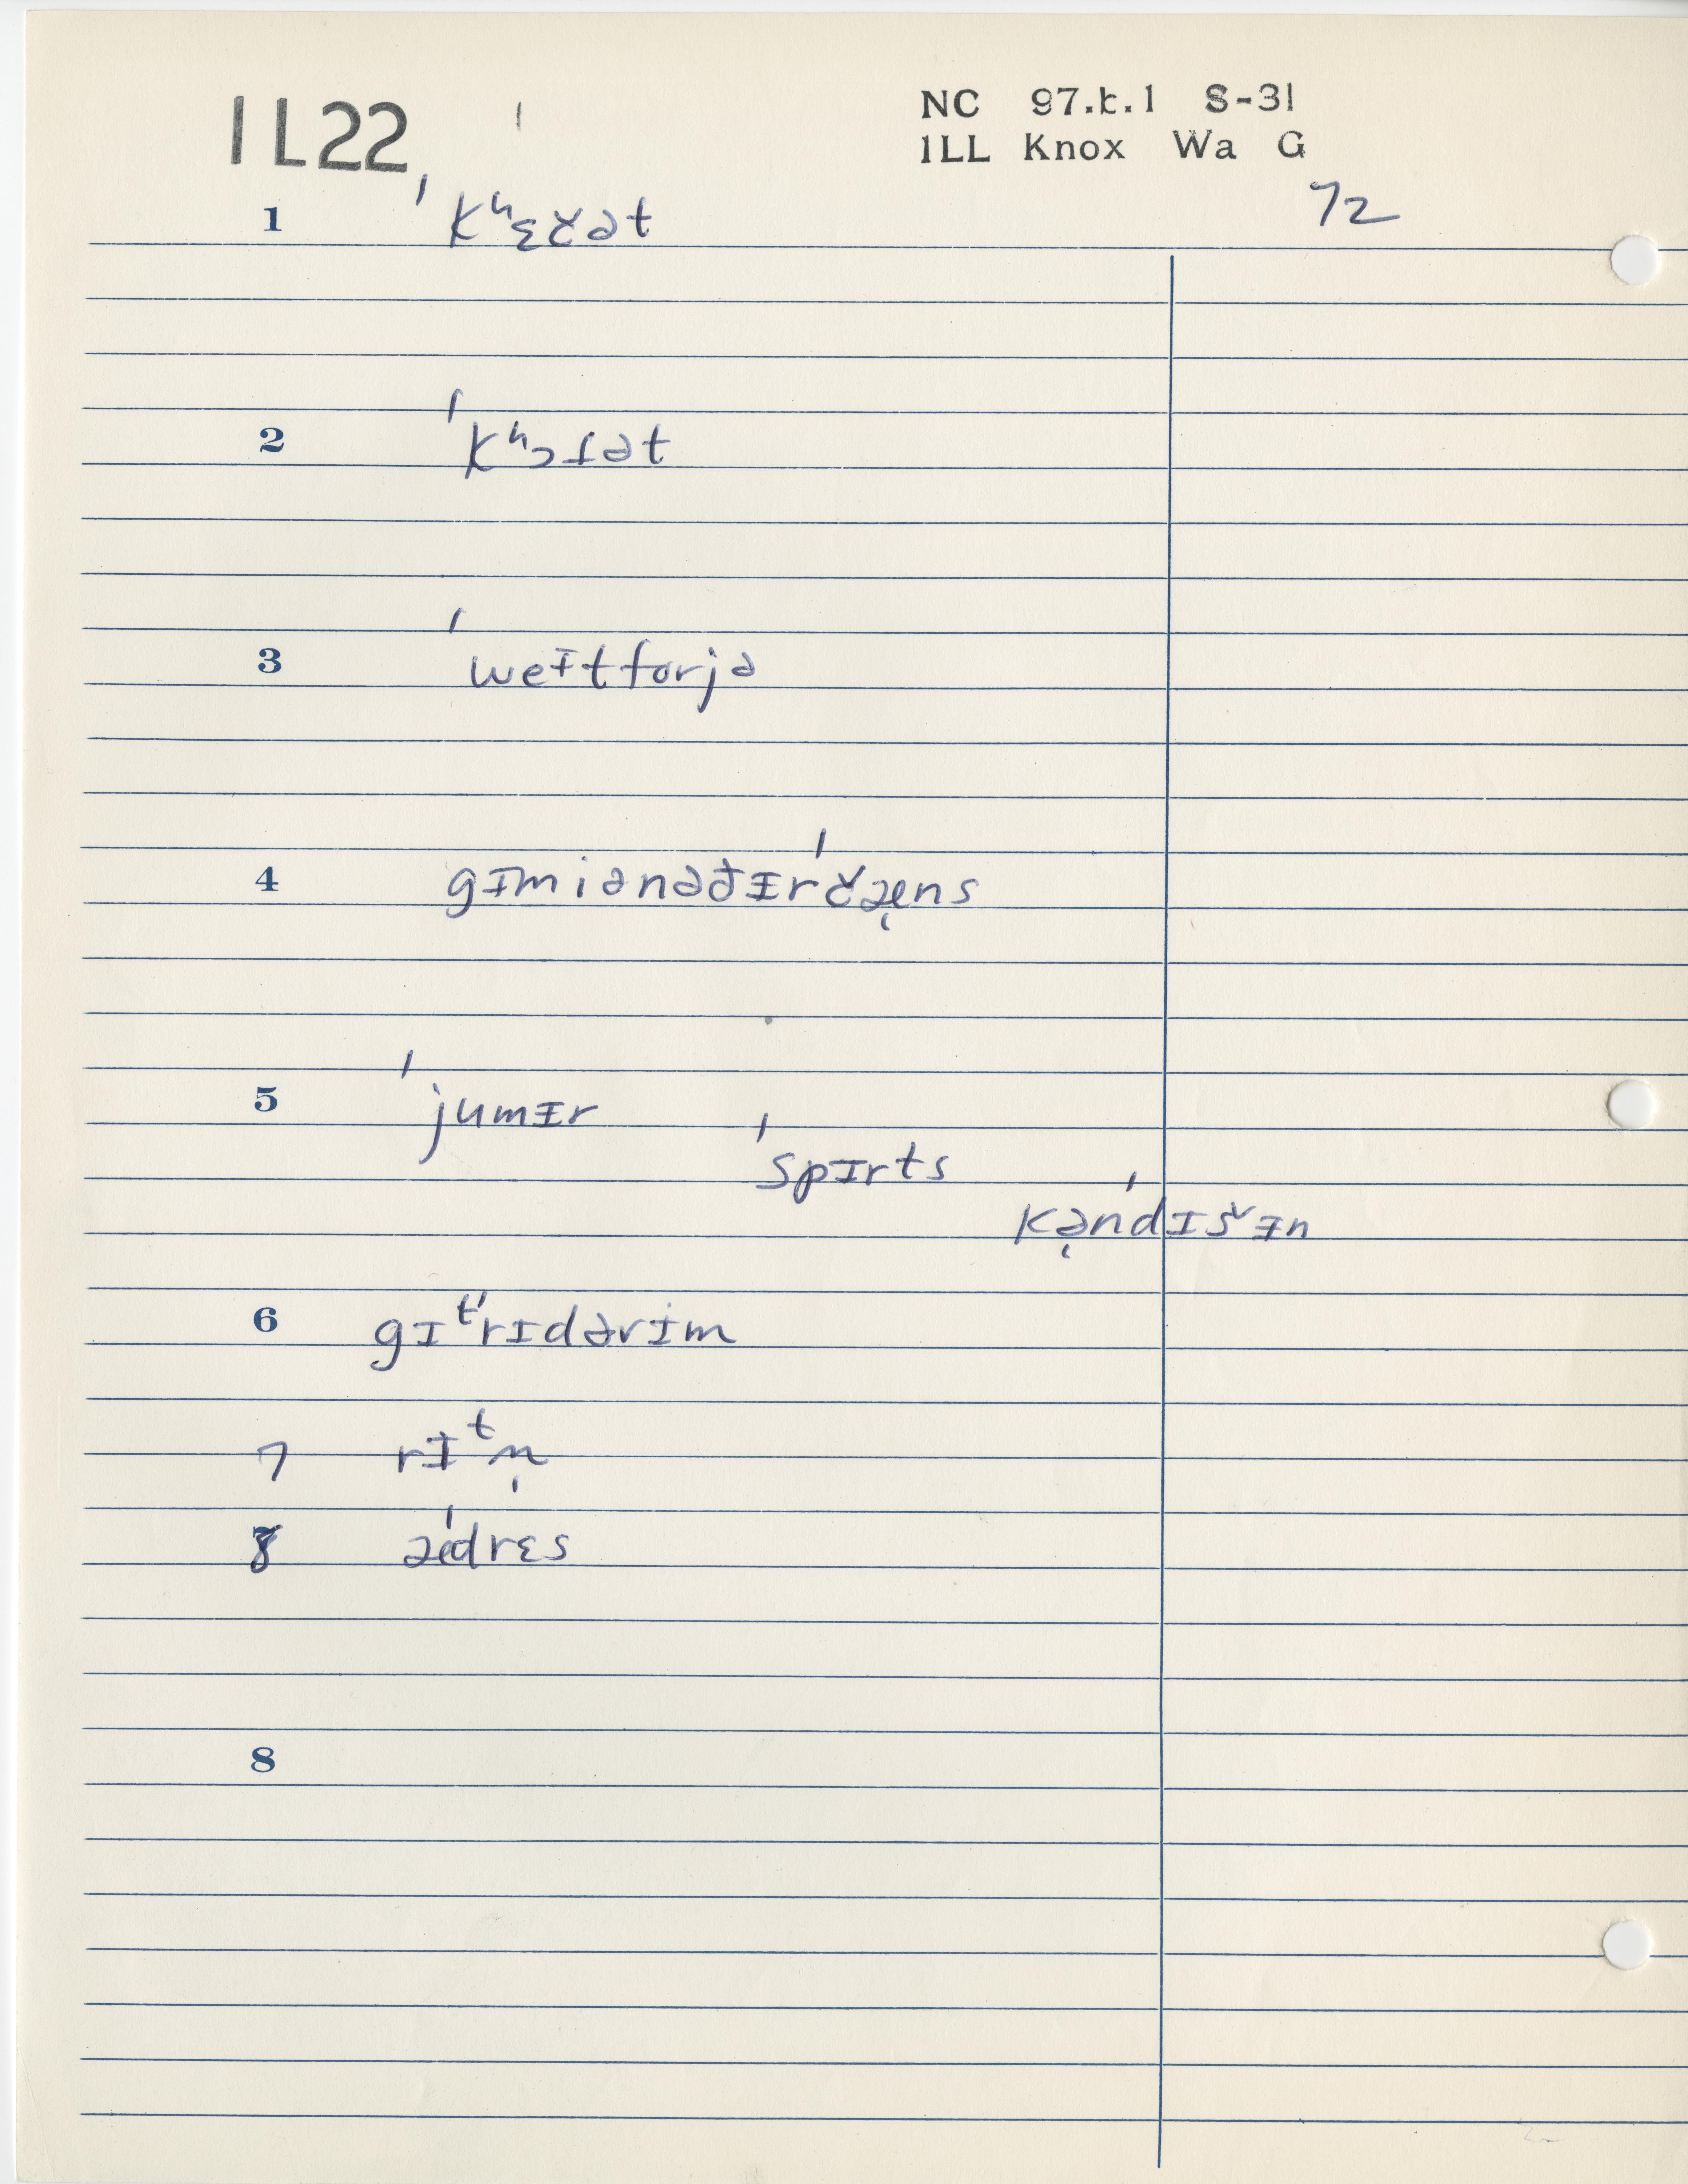 1L22
NC 97.t.1 S-31
1LL Knox Wa G
72
1 ˈkʰɛčət
2 ˈkʰɔɪət
3 ˈweɪtforjə
4 gɪmiənəðɪrˈčæ̨ns
5 ˈjumɪr
ˈspɪrts
kə̨nˈdɪšɪn
6 gɪᵗˈrɪdərɨm
7 rɪᵗn̩
8 ˈædrɛs
8